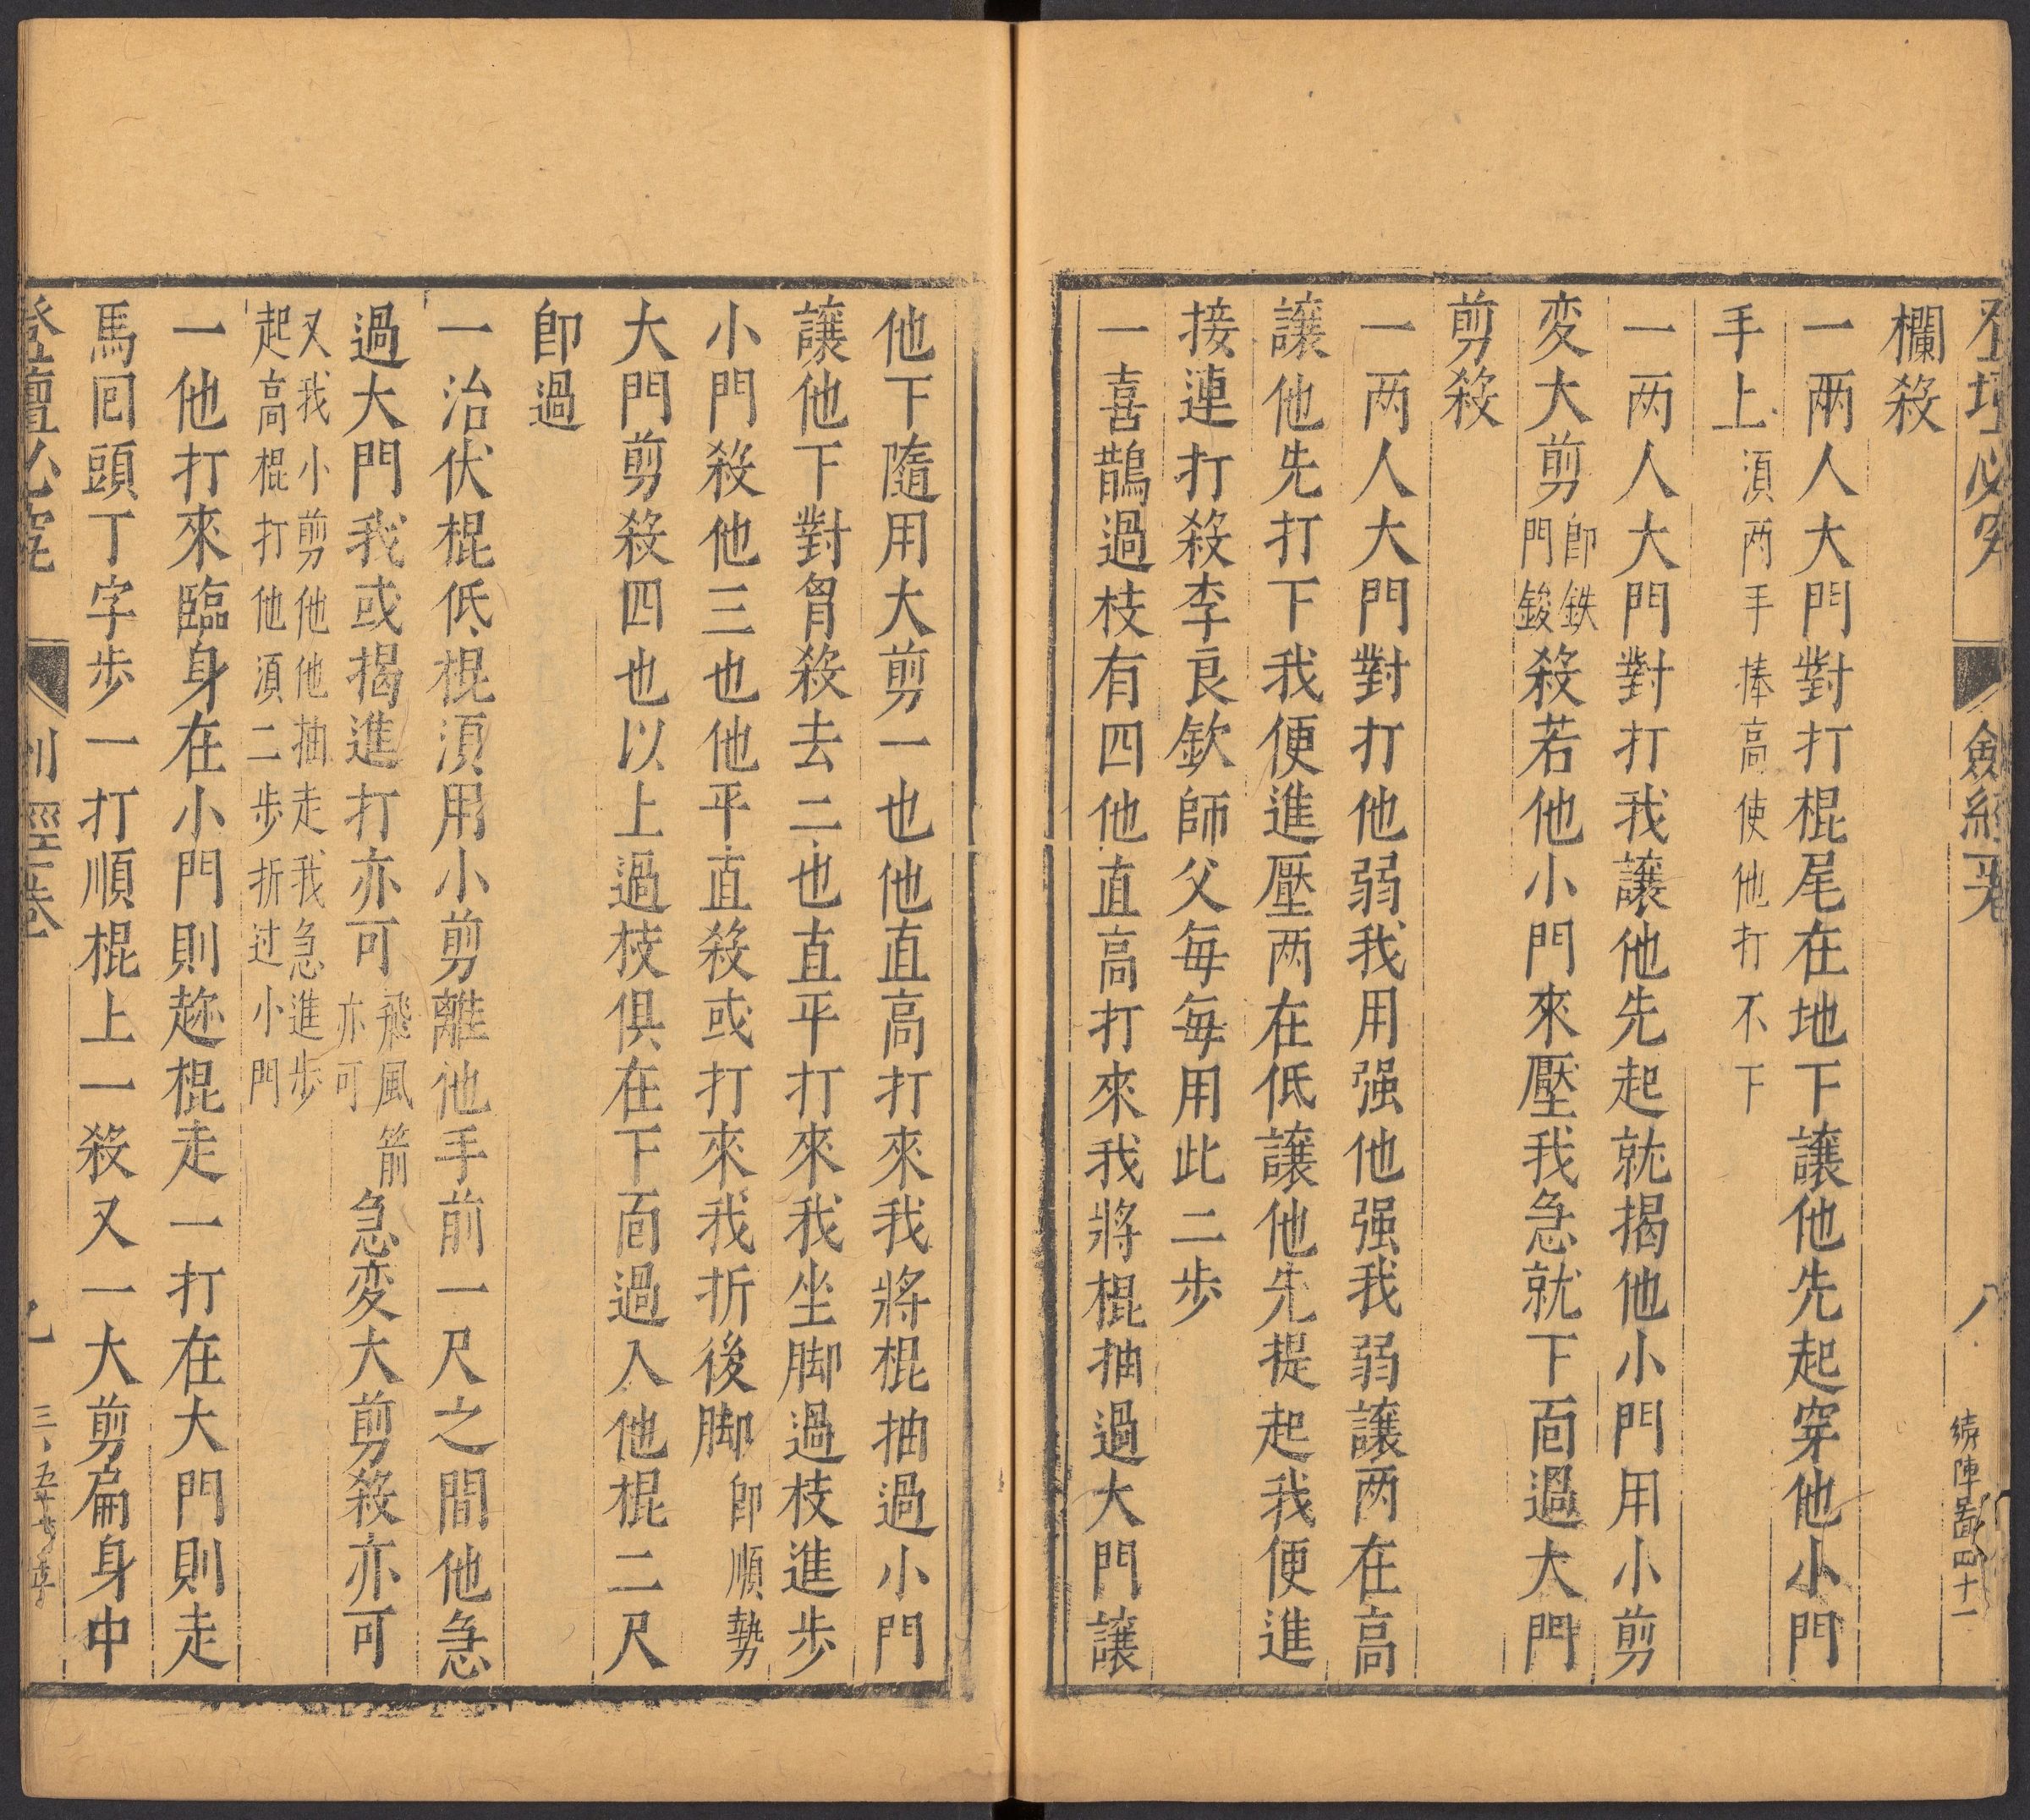 登壇必究 劍經一卷 八 續陣圖四十一
欄殺
一兩人大門對打棍尾在地下讓他先起穿他小門
手上須两手捧高使他打不下
一两人大門對打我讓他先起就揭他小門用小剪
変大剪即鉄門鋑殺若他小門來壓我急就下面過大門
剪殺
一两人大門對打他弱我用强他强我弱讓两在高
讓他先打下我便進壓两在低讓他先提起我便進
接連打殺李良欽師父每每用此二步
一喜鵲過枝有四他直高打來我將棍抽過大門讓
他下隨用大剪一也他直高打來我將棍抽過小門
讓他下對胷殺去二也直平打來我坐脚過枝進步
小門殺他三也他平直殺或打來我折後脚即順勢
大門剪殺四也以上過枝俱在下面過入他棍二尺
即過
一治伏棍低棍須用小剪離他手前一尺之間他急
過大門我或揭進打亦可飛風箭亦可急変大剪殺亦可
又我小剪他他抽走我急進步
起高棍打他須二步折过小門
一他打來臨身在小門則趂棍走一打在大門則走
馬回頭丁字步一打順棍上一殺又一大剪扁身中
登壇必究 經一卷 九